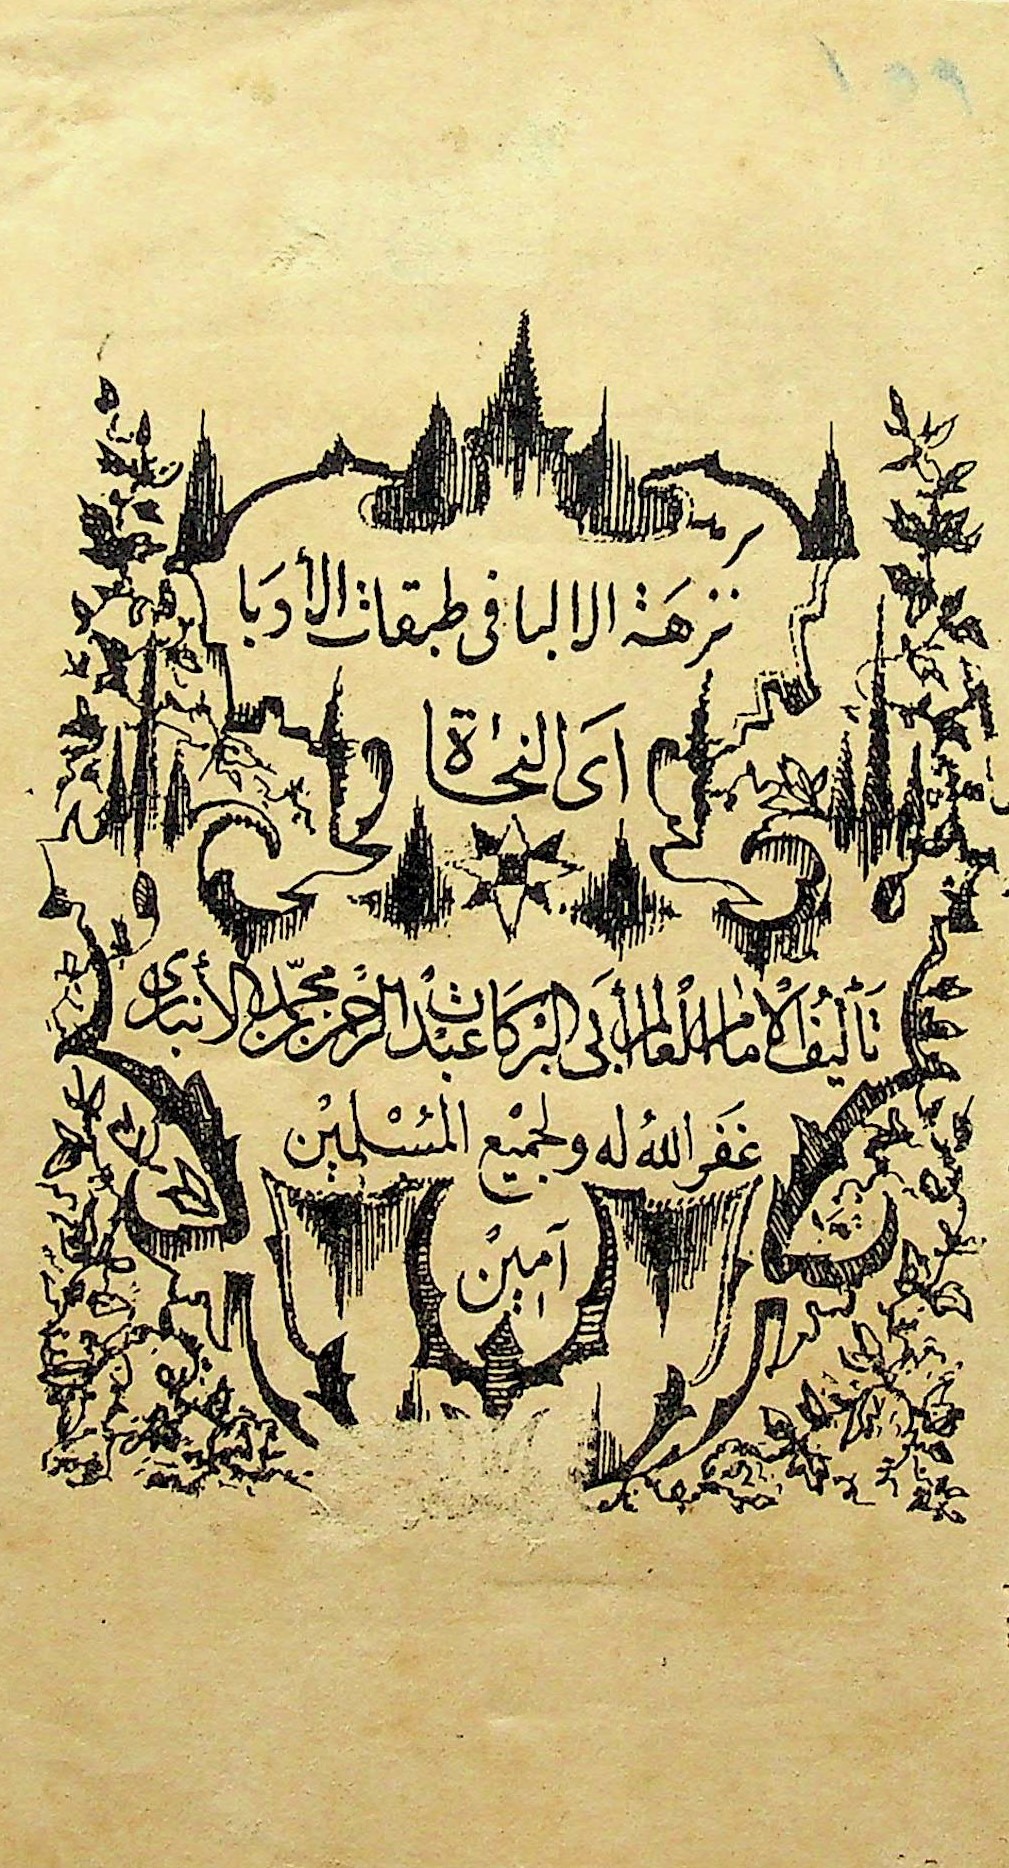 نزهة الالبا فى طبقات الأدبا
اى النحاة
تأليف الإمام العالم أبى البركات عبد الرحمن بن محمد الأنبارى
غفر الله له ولجميع المسلمين
آمين